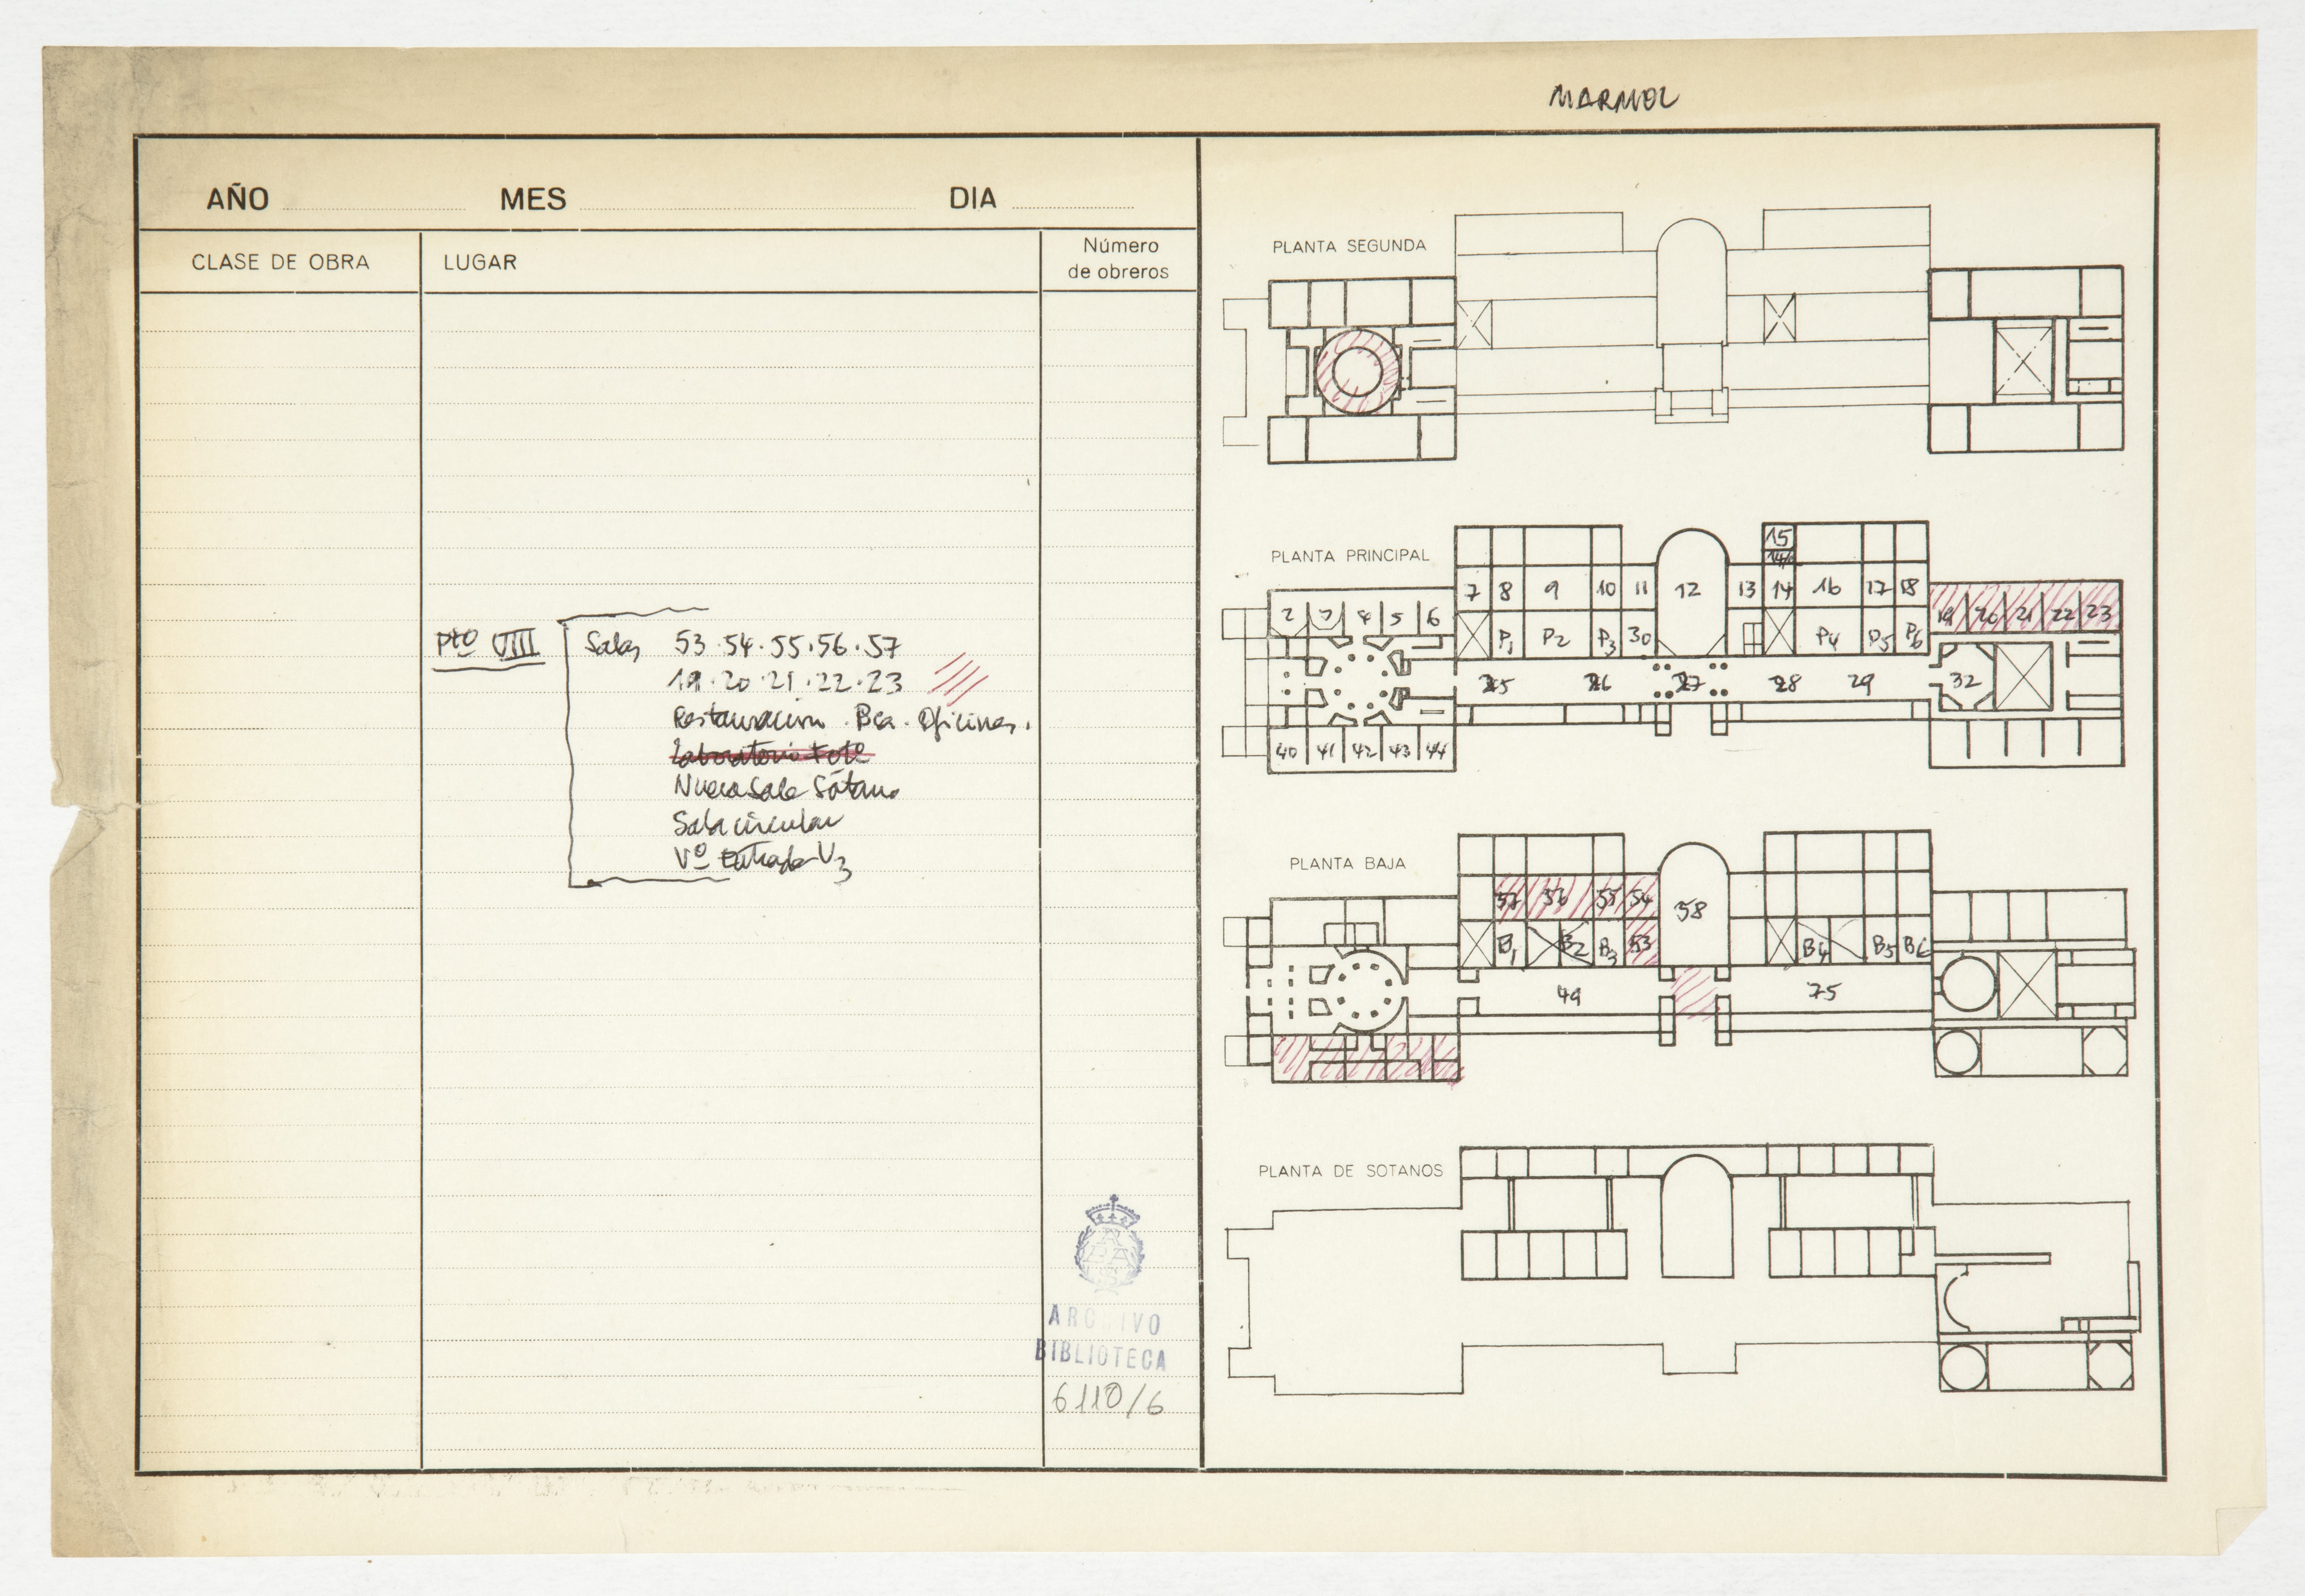 MARMOL
AÑO MES DIA
CLASE DE OBRA LUGAR Número de obreros
Pto VIII Salas 53·54·55·56·57
19·20·21·22·23
Restauracion. Bca. Oficinas.
Laboratorio Foto
Nueva Sala Sótano
Sala circular
Vº Entrada V3
ARCHIVO
BIBLIOTECA
6110/6
PLANTA SEGUNDA
PLANTA PRINCIPAL
15
7 8 9 10 11 12 13 14 16 17 18
2 3 4 5 6 19 20 21 22 23
P1 P2 P3 30 P4 P5 P6
25 26 27 28 29 32
40 41 42 43 44
PLANTA BAJA
57 56 55 54 58
B1 B2 B3 53 B4 B5 B6
49 75
PLANTA DE SOTANOS